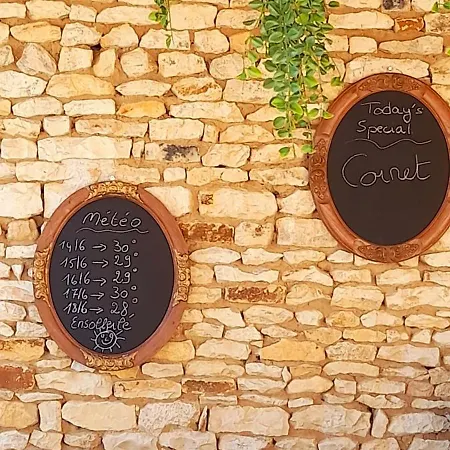 Météo
14/6 → 30°
15/6 → 29°
16/6 → 29°
17/6 → 30°
18/6 → 28°
Ensolleifé
Today's
Special
Coiret